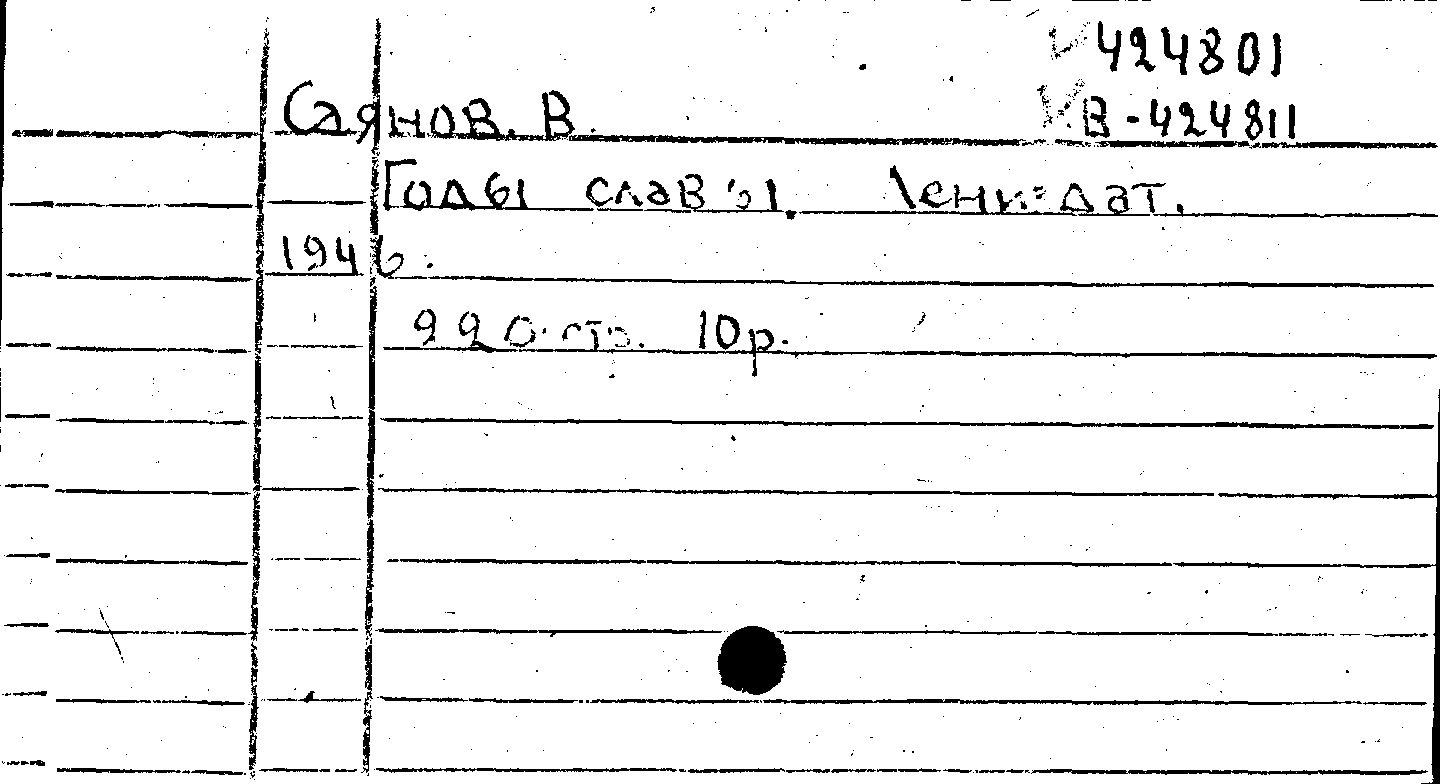 424801
Саянов. В.
В-424811
Годы славы. Лениздат.
1946.
220 стр. 10р.